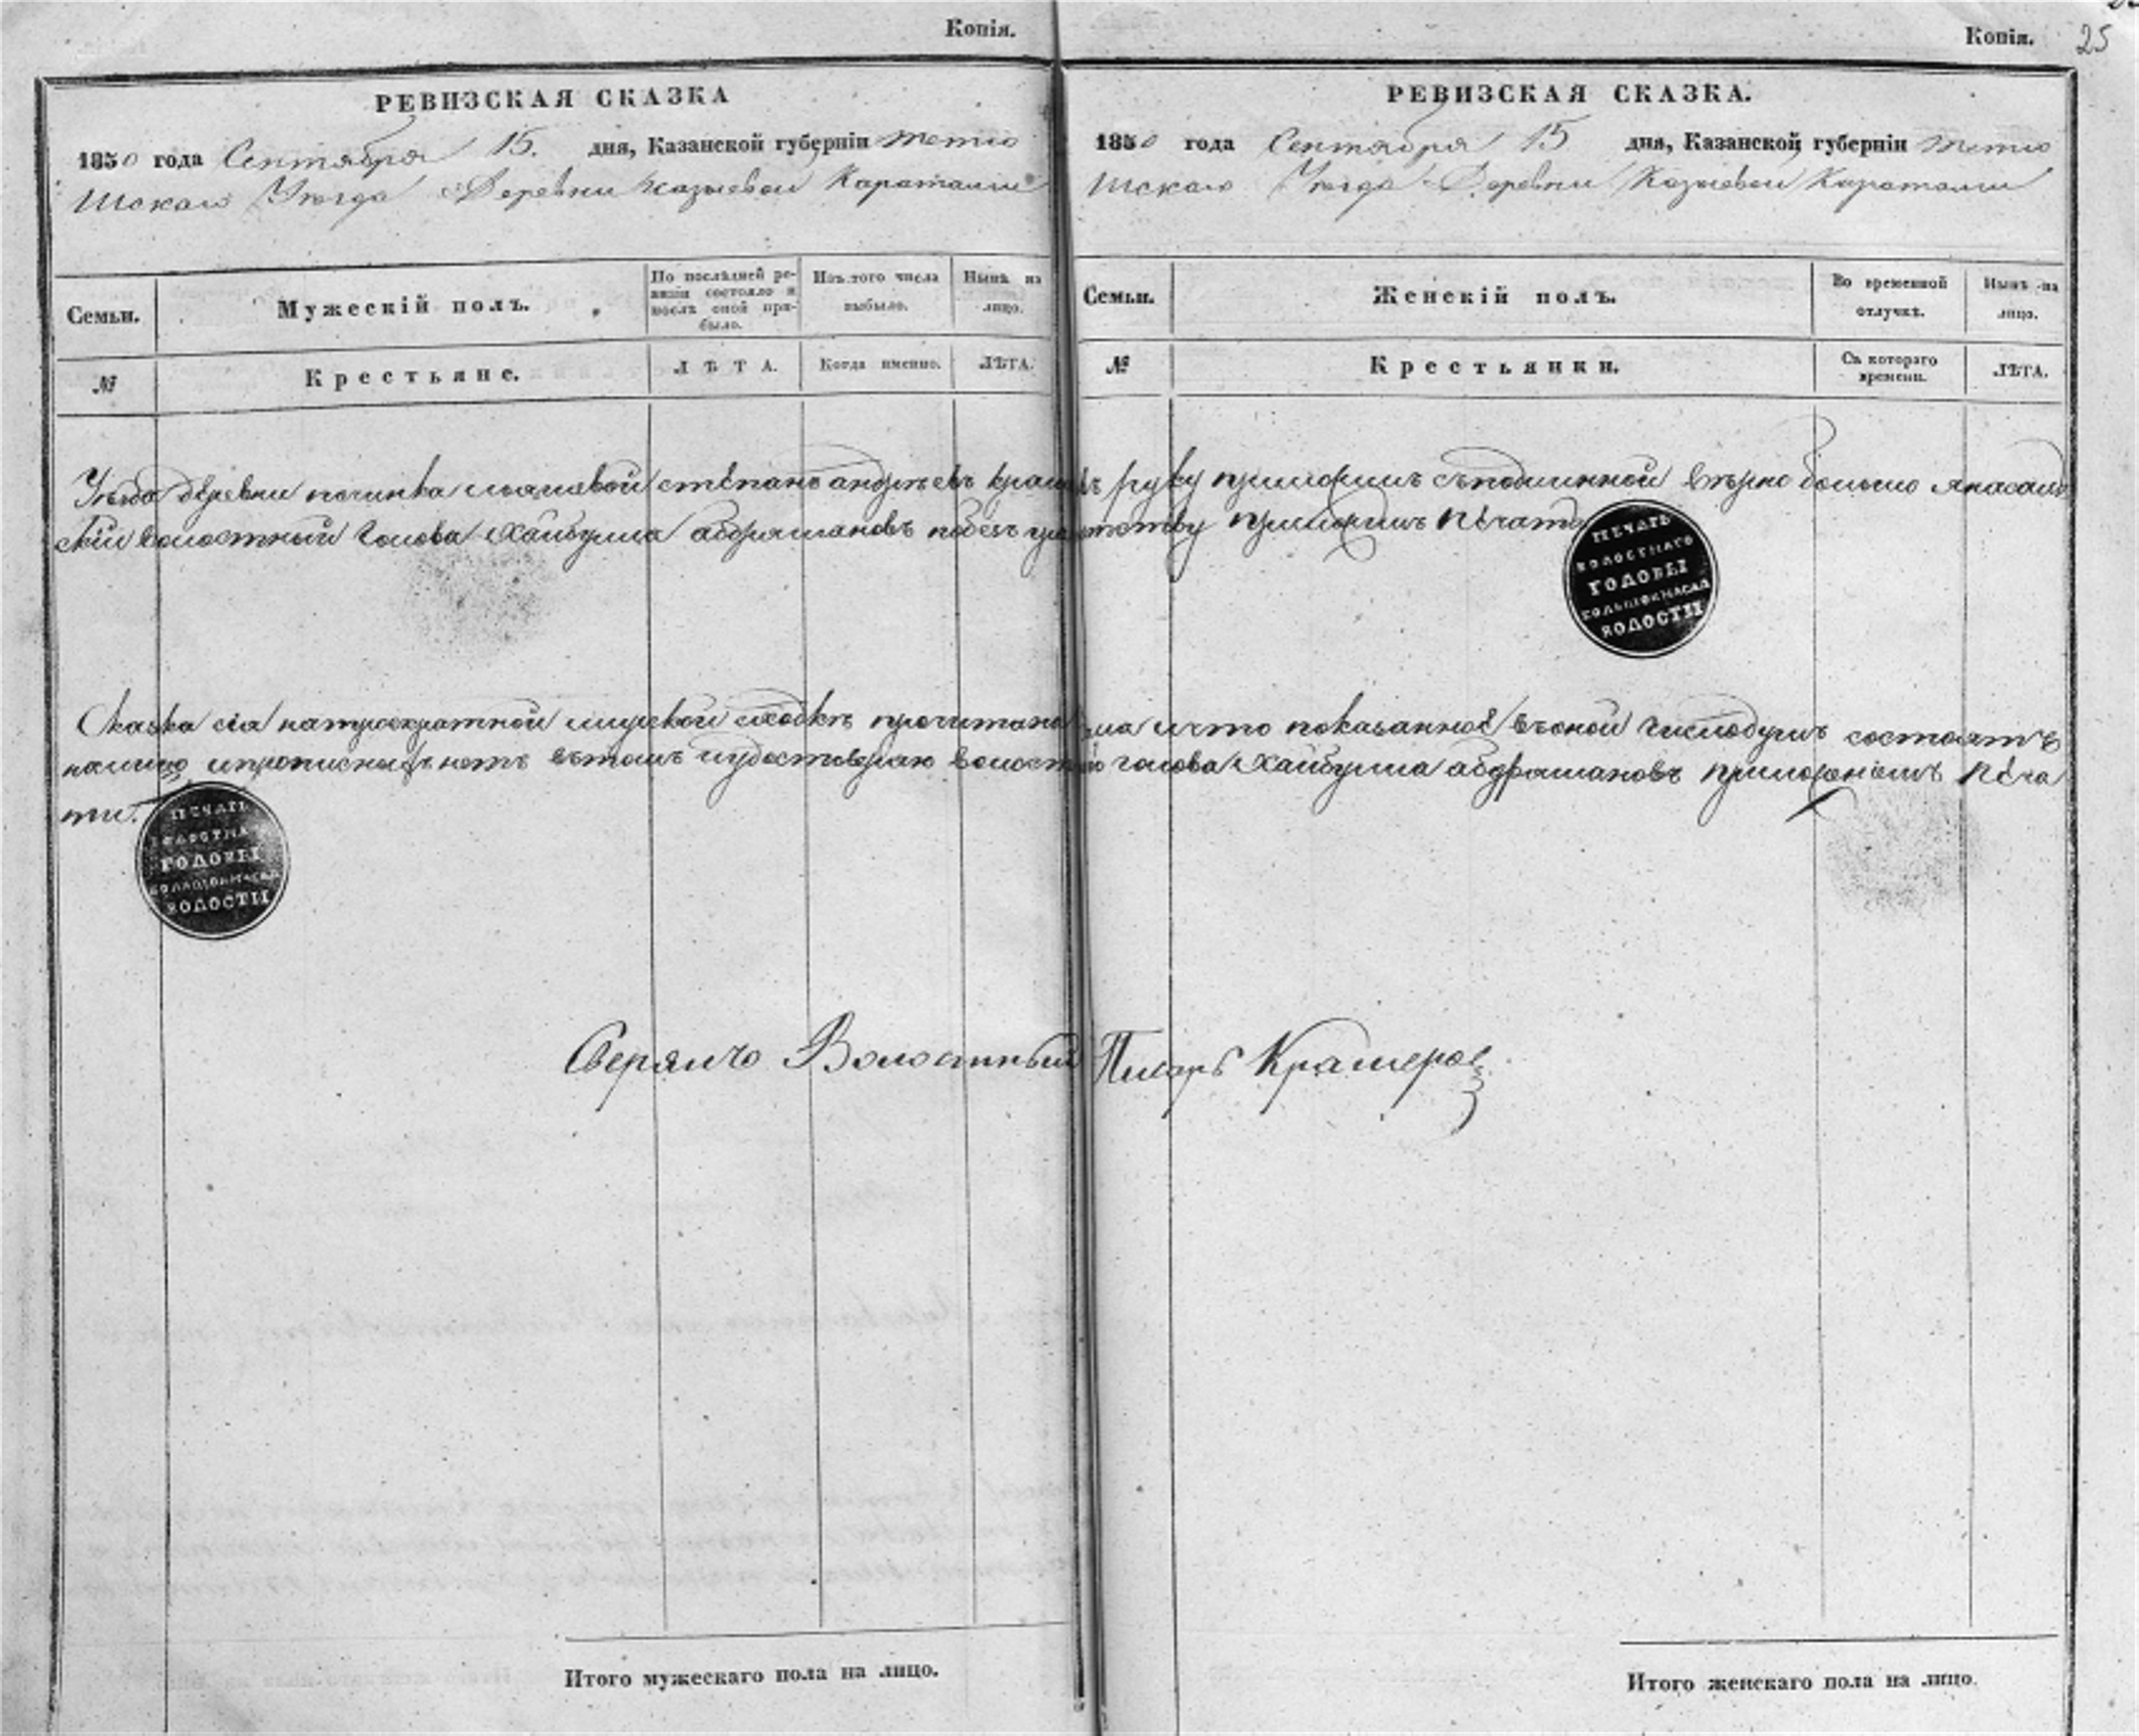 Копія.
РЕВИЗСКАЯ СКАЗКА
1850 года Сентября 15. дня, Казанской губерніи тетю
шскаго Уѣзда Деревни казыевой Караталги
Семьи.
Мужескій полъ.
По послѣдней ре-
визіи состояло и
послѣ оной при-
было.
Изъ того числа
выбыло.
Нынѣ на
лицо.
№
Крестьяне.
ЛѢТА.
Когда именно.
ЛѢТА.
Копія.
25
РЕВИЗСКАЯ СКАЗКА.
1850 года Сентября 15 дня, Казанской губерніи тетю
шскаго Уѣзда Деревни Казыевой Караталги
Семьи.
Женскій полъ.
Во временной
отлучкѣ.
Нынѣ на
лицо.
№
Крестьянки.
Съ котораго
времени.
ЛѢТА.
Уѣзда деревни починка степанъ андреевъ руку приложилъ съподлинной вѣрно болшо
волостный Голова Хайбулла абдряшановъ приложилъ печать
ПЕЧАТЬ
ВОЛОСТНАГО
ГОЛОВЫ
ВОЛОСТИ
Сказка сія натроекратной мирской сходкѣ прочитана и что показанное въоной число душъ состоитъ
налицо ипрописныхъ нетъ вътомъ иудостоверяю волостной голова Хайбулла абдряшановъ приложеніемъ пѣча
ти.
ПЕЧАТЬ
ВОЛОСТНА
ГОЛОВЫ
ВОЛОСТИ
Сверялъ Волостный Писарь Крамеров
Итого мужескаго пола на лицо.
Итого женскаго пола на лицо.